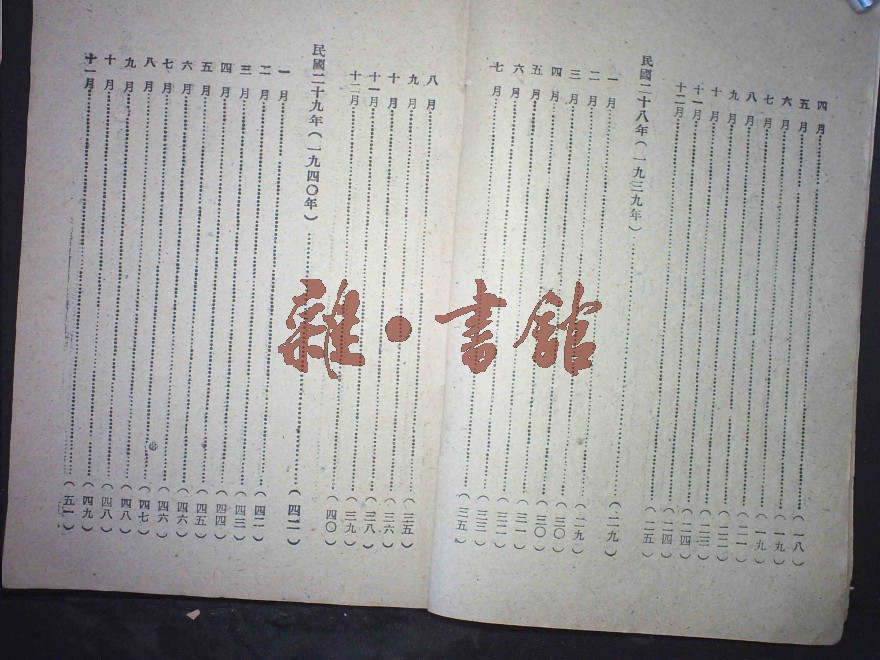 四月……(一八)
五月……(一九)
六月……(一九)
七月……(二一)
八月……(二二)
九月……(二三)
十月……(二四)
十一月……(二四)
十二月……(二五)
民國二十八年(一九三九年)……(二九)
一月……(二九)
二月……(三〇)
三月……(三〇)
四月……(三一)
五月……(三二)
六月……(三三)
七月……(三五)
八月……(三五)
九月……(三六)
十月……(三八)
十一月……(三九)
十二月……(四〇)
民國二十九年(一九四〇年)……(四二)
一月……(四二)
二月……(四三)
三月……(四四)
四月……(四五)
五月……(四六)
六月……(四六)
七月……(四七)
八月……(四八)
九月……(四八)
十月……(四九)
十一月……(五一)
雜·書館